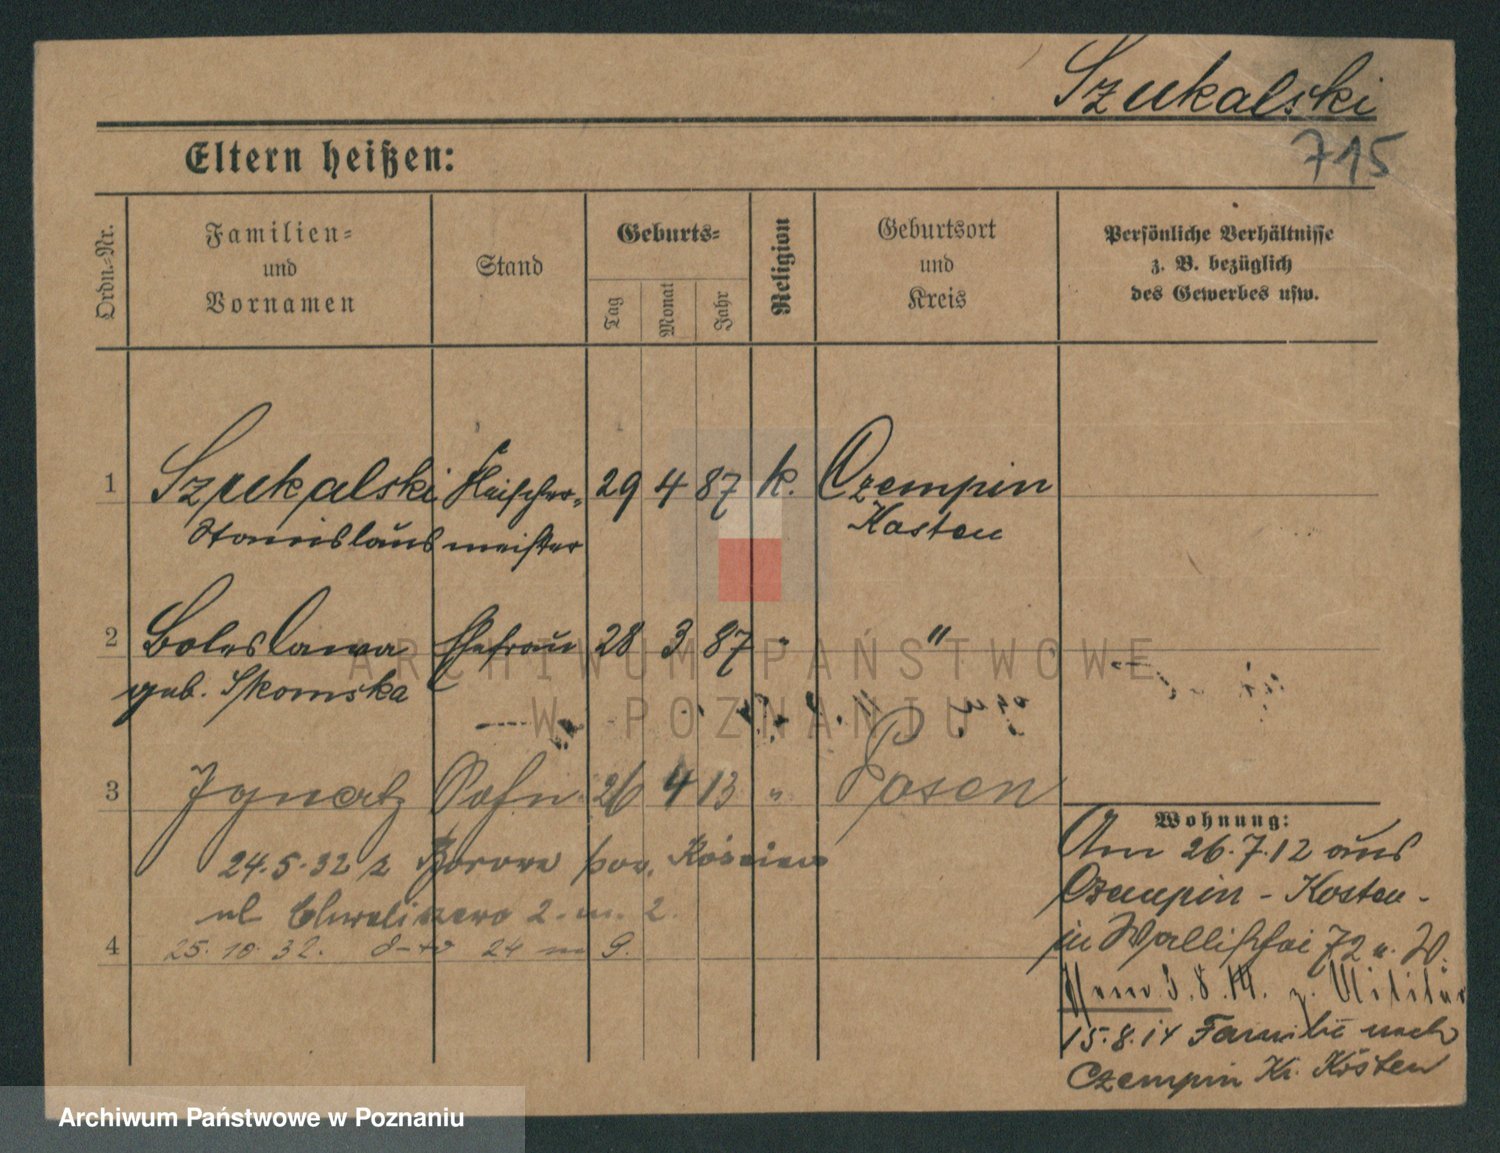 Szukalski
715
Eltern heißen:
Ordn.-Nr.
Familien-
und
Vornamen
Stand
Geburts-
Tag
Monat
Jahr
Religion
Geburtsort
und
Kreis
Persönliche Verhältnisse
z. B. bezüglich
des Gewerbes usw.
1 Szukalski Fleischer- 29 4 87 k. Czempin
Stanislaus meister Kosten
2 Boleslawa Ehefrau 28 3 87 " "
geb. Skomska
3 Ignatz Sohn 26 4 13 " Posen
24.5.32 z Borowa pow. Kościan
ul 2. m. 2.
4 25.10.32. 24 m 9.
Wohnung:
Am 26.7.12 aus
Czempin - Kosten -
in Wallischei 72 u. W.
3.8.14. z. Militär
15.8.14 Familie nach
Czempin Kr. Kosten
ARCHIWUM PAŃSTWOWE
W POZNANIU
Archiwum Państwowe w Poznaniu